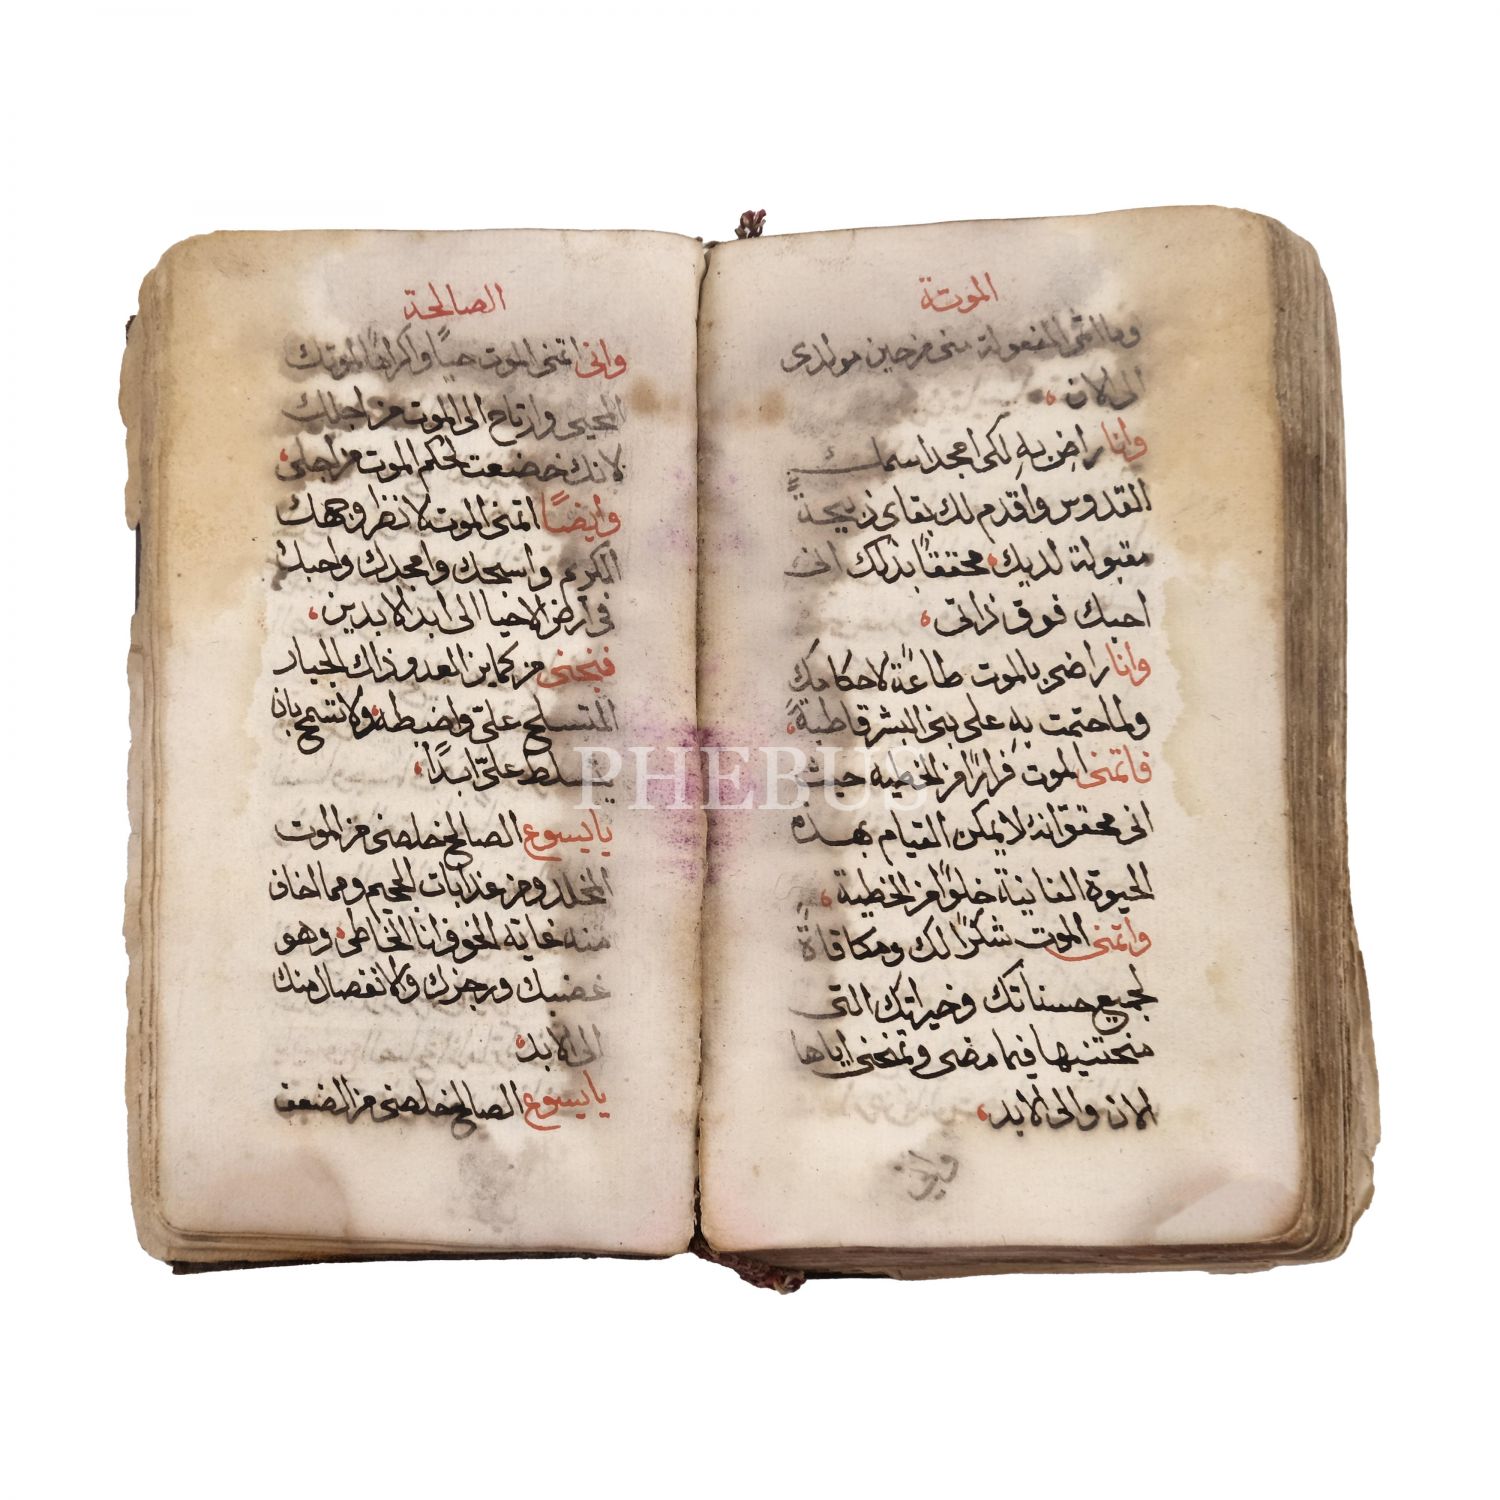 الموتة
وبااثمي المفعولة مني من حين مولدي
الى الان ،
وانا راضٍ بهِ لكى امجد اسمك
القدوس واقدم لك بقاى ذبيحةً
مقبولة لديك، محققًا بذلك انى
احبك فوق ذاتى ،
وانا راضى بالموت طاعةً لاحكامك
ولما حتمت بهِ على بنى البشر قاطبةً،
فاتمنى الموت فرارًا من الخطيه حيث
انى محقق انهُ لا يمكن القيام بهذه
الحيوة الفانية خلوًا من الخطية ،
واتمنى الموت شكرًا لك ومكافاةً
لجميع حسناتك وخيراتك التى
منحتنيها فيما مضى وتمنحنى اياها
الان والى الابد ،
وانى
الصالحة
وانى اتمنى الموت حبًا واكرامًا لموتك
المحيى وارتاح الى الموت من اجلك
لانك خضعت لحكم الموت من اجلى ،
وايضًا اتمنى الموت لانظر وجهك
الكريم واسبحك وامجدك واحبك
فى ارض الاحيا الى ابد الابدين ،
فنجنى من كماين العدو ذاك الجبار
المتسلح علىّ واضبطه، ولا تسمح بان
يتسلط علىّ ابدًا ،
يا يسوع الصالح خلصنى من الموت
المخلد ومن عذابات الجحيم ومما اخاف
منه غاية الخوف انا الخاطى، وهو
غضبك ورجزك والانفصال منك
الى الابد،
يا يسوع الصالح خلصنى من الضعف
PHEBUS